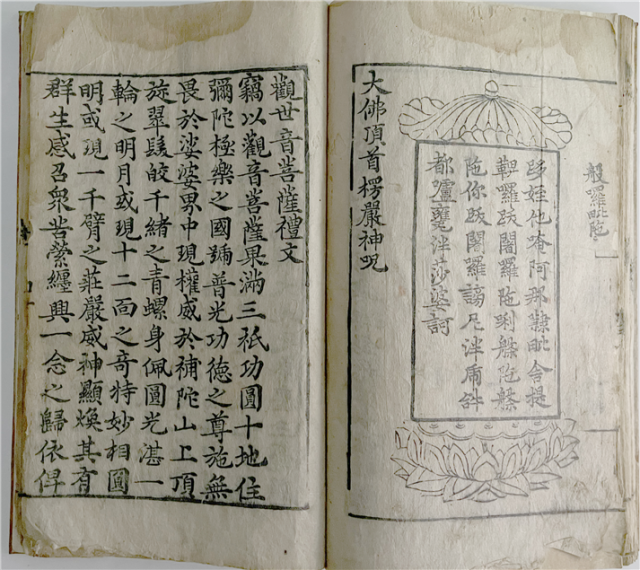 般羅毗陁
跢姪他唵阿那隸毗舍提
鞞羅跋闍羅陁唎槃陁槃
陁你跋闍羅謗尼泮虎𤙖
都嚧甕泮莎婆訶
大佛頂首楞嚴神呪
觀世音菩薩禮文
竊以觀音菩薩果滿三祇功圓十地住
彌陀極樂之國號普光功德之尊施無
畏於娑婆界中現權威於補陀山上頂
旋翠髮皎千緒之青螺身佩圓光湛一
輪之明月或現十二面之奇特妙相圓
明或現一千臂之莊嚴威神顯煥其有
群生感召衆苦縈纏興一念之歸依俾